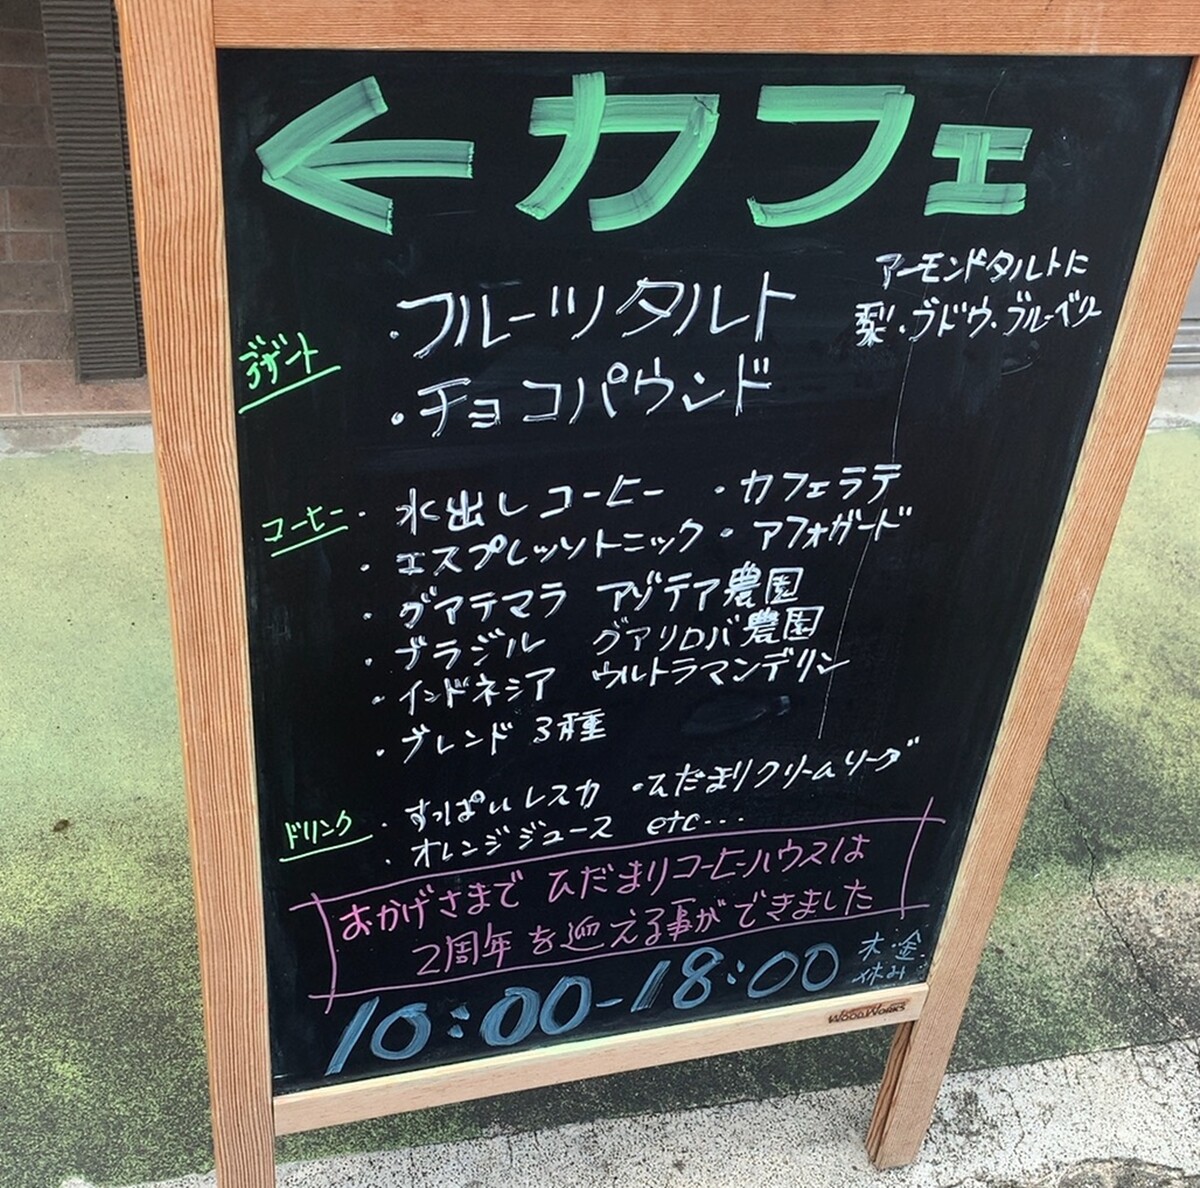 ← カフェ
アーモンドタルトに
梨・ブドウ・ブルーベリー
デザート
・フルーツタルト
・チョコパウンド
コーヒー
・水出しコーヒー ・カフェラテ
・エスプレッソトニック ・アフォガード
・グアテマラ アゾテア農園
・ブラジル グアリロバ農園
・インドネシア ウルトラマンデリン
・ブレンド 3種
ドリンク
・すっぱいレスカ ・ひだまりクリームソーダ
・オレンジジュース etc…
おかげさまで ひだまりコーヒーハウスは
2周年を迎える事ができました
10:00-18:00
木・金
休み
WOODWORKS